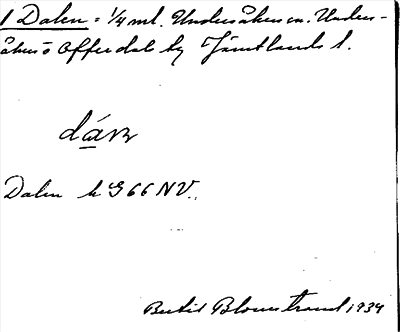 1 Dalen = 1/4 ml. Undersåkers sn. Unders-
åkers o Offerdals tg Jämtlands l.
dáṉ
Dalen h G 66 NV.
Bertil Blomstrand 1934